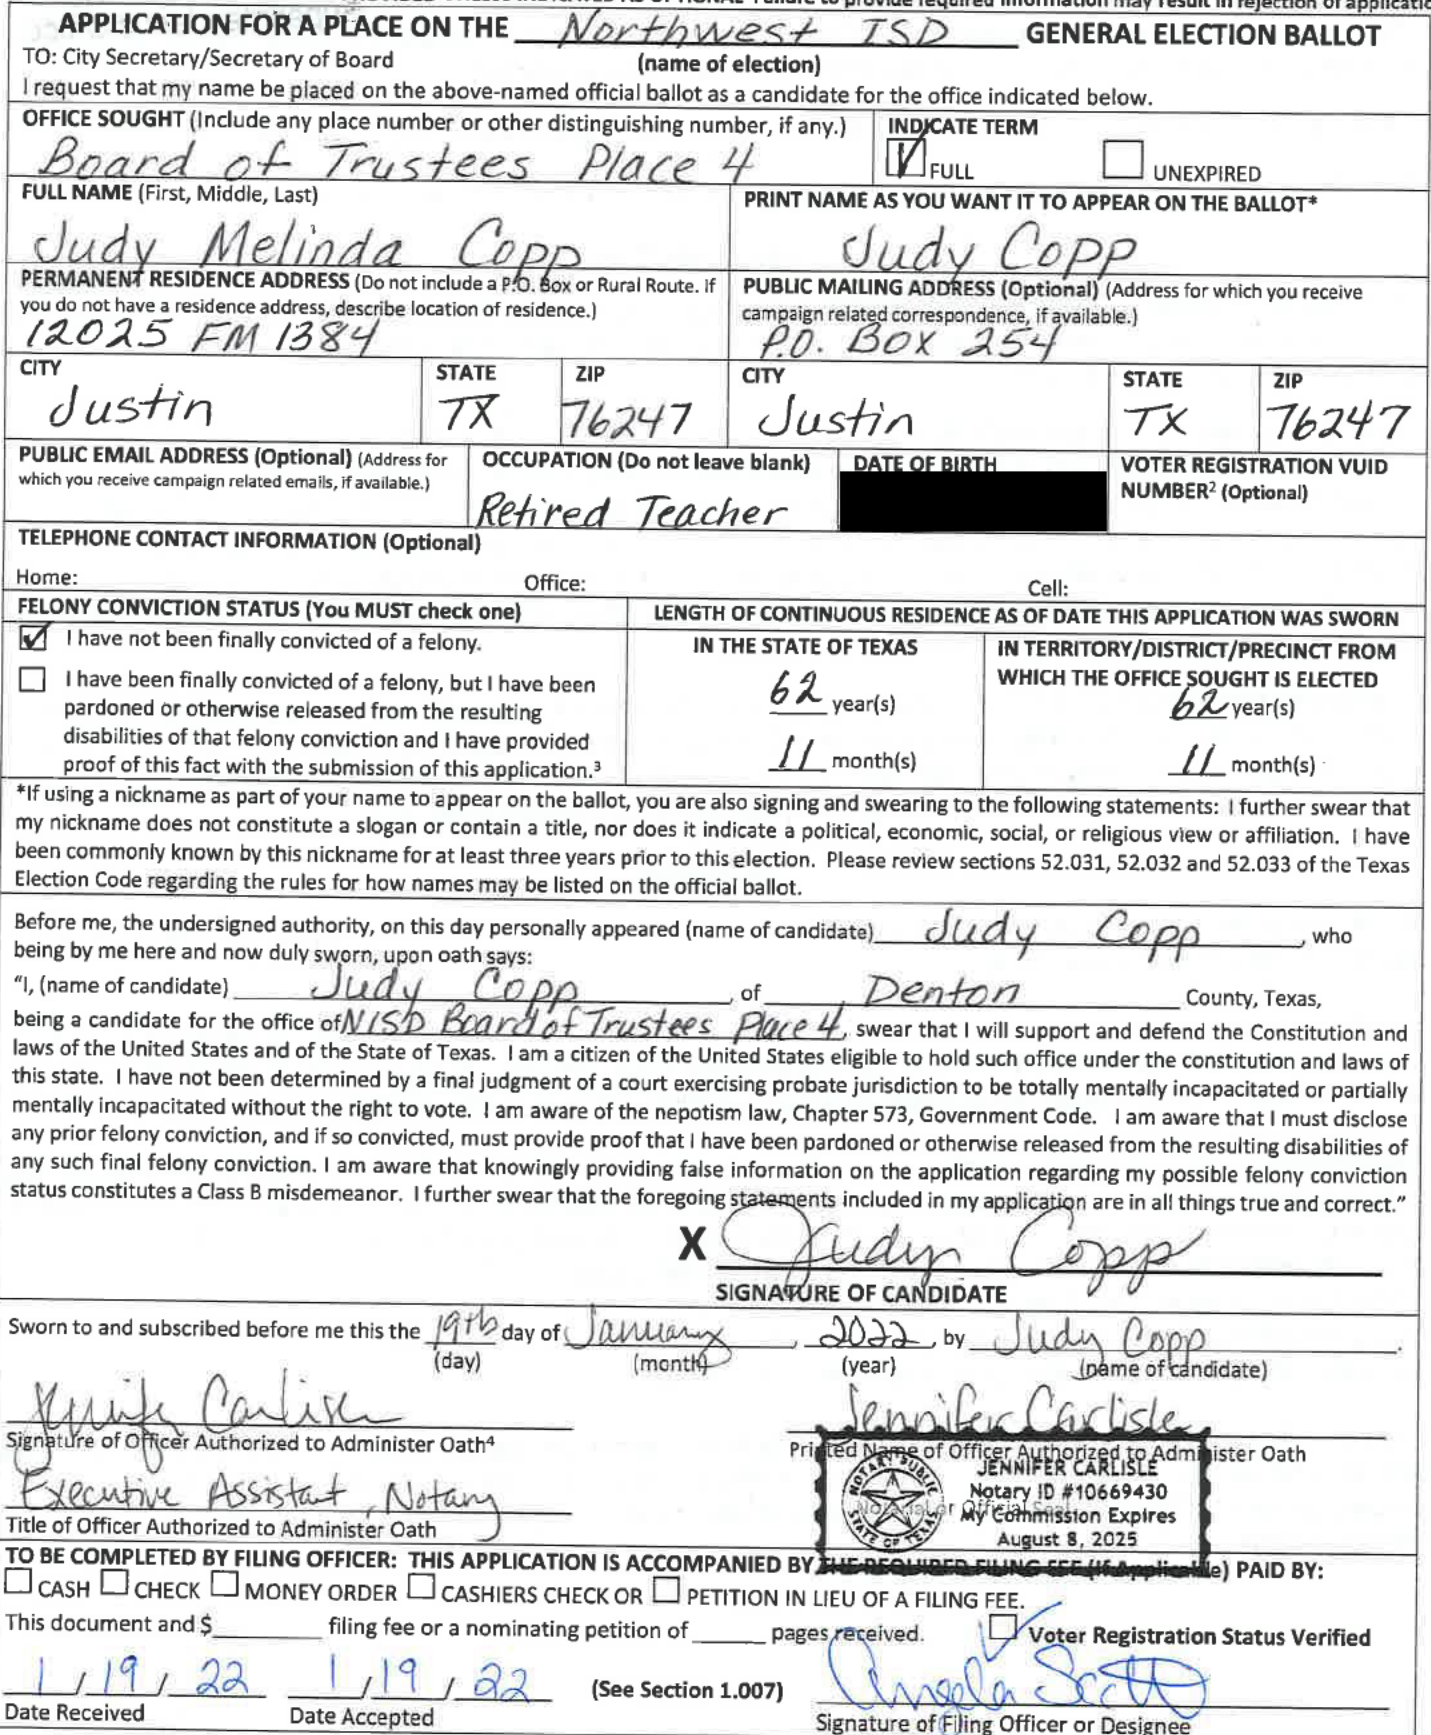 APPLICATION FOR A PLACE ON THE Northwest ISD GENERAL ELECTION BALLOT
TO: City Secretary/Secretary of Board (name of election)
I request that my name be placed on the above-named official ballot as a candidate for the office indicated below.
OFFICE SOUGHT (Include any place number or other distinguishing number, if any.)
Board of Trustees Place 4
INDICATE TERM
FULL UNEXPIRED
FULL NAME (First, Middle, Last)
Judy Melinda Copp
PRINT NAME AS YOU WANT IT TO APPEAR ON THE BALLOT*
Judy Copp
PERMANENT RESIDENCE ADDRESS (Do not include a P.O. Box or Rural Route. If
you do not have a residence address, describe location of residence.)
12025 FM 1384
PUBLIC MAILING ADDRESS (Optional) (Address for which you receive
campaign related correspondence, if available.)
P.O. BOX 254
CITY STATE ZIP CITY STATE ZIP
Justin TX 76247 Justin TX 76247
PUBLIC EMAIL ADDRESS (Optional) (Address for
which you receive campaign related emails, if available.)
OCCUPATION (Do not leave blank)
Retired Teacher
DATE OF BIRTH
VOTER REGISTRATION VUID
NUMBER² (Optional)
TELEPHONE CONTACT INFORMATION (Optional)
Home: Office: Cell:
FELONY CONVICTION STATUS (You MUST check one)
I have not been finally convicted of a felony.
I have been finally convicted of a felony, but I have been
pardoned or otherwise released from the resulting
disabilities of that felony conviction and I have provided
proof of this fact with the submission of this application.³
LENGTH OF CONTINUOUS RESIDENCE AS OF DATE THIS APPLICATION WAS SWORN
IN THE STATE OF TEXAS
62 year(s)
11 month(s)
IN TERRITORY/DISTRICT/PRECINCT FROM
WHICH THE OFFICE SOUGHT IS ELECTED
62 year(s)
11 month(s)
*If using a nickname as part of your name to appear on the ballot, you are also signing and swearing to the following statements: I further swear that
my nickname does not constitute a slogan or contain a title, nor does it indicate a political, economic, social, or religious view or affiliation. I have
been commonly known by this nickname for at least three years prior to this election. Please review sections 52.031, 52.032 and 52.033 of the Texas
Election Code regarding the rules for how names may be listed on the official ballot.
Before me, the undersigned authority, on this day personally appeared (name of candidate) Judy Copp, who
being by me here and now duly sworn, upon oath says:
"I, (name of candidate) Judy Copp, of Denton County, Texas,
being a candidate for the office of NISD Board of Trustees Place 4, swear that I will support and defend the Constitution and
laws of the United States and of the State of Texas. I am a citizen of the United States eligible to hold such office under the constitution and laws of
this state. I have not been determined by a final judgment of a court exercising probate jurisdiction to be totally mentally incapacitated or partially
mentally incapacitated without the right to vote. I am aware of the nepotism law, Chapter 573, Government Code. I am aware that I must disclose
any prior felony conviction, and if so convicted, must provide proof that I have been pardoned or otherwise released from the resulting disabilities of
any such final felony conviction. I am aware that knowingly providing false information on the application regarding my possible felony conviction
status constitutes a Class B misdemeanor. I further swear that the foregoing statements included in my application are in all things true and correct."
X Judy Copp
SIGNATURE OF CANDIDATE
Sworn to and subscribed before me this the 19th day of January, 2022, by Judy Copp.
(day) (month) (year) (name of candidate)
Jennifer Carlisle Jennifer Carlisle
Signature of Officer Authorized to Administer Oath⁴ Printed Name of Officer Authorized to Administer Oath
Executive Assistant, Notary
Title of Officer Authorized to Administer Oath
Notarial or Official Seal
NOTARY PUBLIC
STATE OF TEXAS
JENNIFER CARLISLE
Notary ID #10669430
My Commission Expires
August 8, 2025
TO BE COMPLETED BY FILING OFFICER: THIS APPLICATION IS ACCOMPANIED BY THE REQUIRED FILING FEE (If Applicable) PAID BY:
CASH CHECK MONEY ORDER CASHIERS CHECK OR PETITION IN LIEU OF A FILING FEE.
This document and $ filing fee or a nominating petition of pages received. Voter Registration Status Verified
1/19/22 1/19/22 (See Section 1.007) Angela Scott
Date Received Date Accepted Signature of Filing Officer or Designee